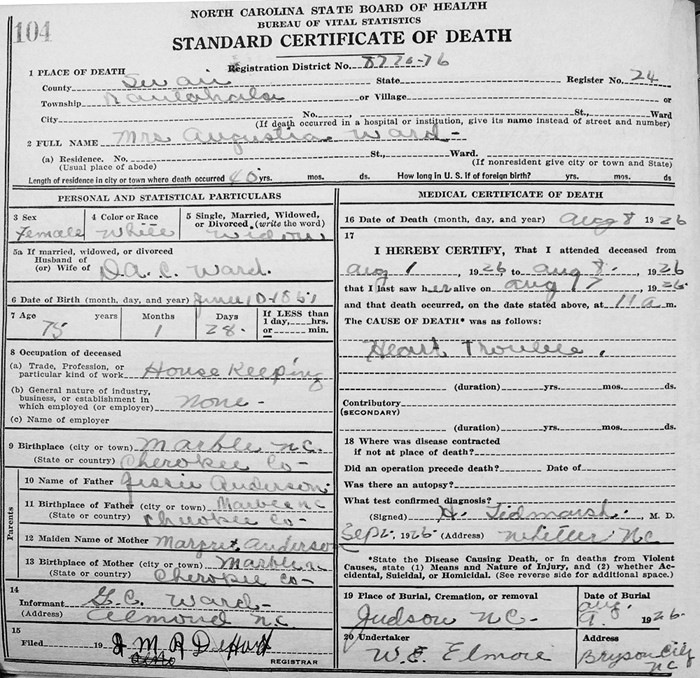 104
NORTH CAROLINA STATE BOARD OF HEALTH
BUREAU OF VITAL STATISTICS
STANDARD CERTIFICATE OF DEATH
1 PLACE OF DEATH Registration District No. 8720-76
County Swain State Register No. 24
Township Nantahala or Village or
City No., St., Ward
(If death occurred in a hospital or institution, give its name instead of street and number)
2 FULL NAME Mrs Augustia Ward-
(a) Residence. No. St., Ward.
(Usual place of abode) (If nonresident give city or town and State)
Length of residence in city or town where death occurred 40 yrs. mos. ds. How long in U. S. if of foreign birth? yrs. mos. ds.
PERSONAL AND STATISTICAL PARTICULARS
3 Sex
Female
4 Color or Race
White
5 Single, Married, Widowed,
or Divorced. (write the word)
Widow
5a If married, widowed, or divorced
Husband of
(or) Wife of D.A.C. Ward.
6 Date of Birth (month, day, and year) June 10-1851
7 Age years Months Days If LESS than
1 day, hrs.
or min.
75 1 28-
8 Occupation of deceased
(a) Trade, Profession, or
particular kind of work House Keeping
(b) General nature of industry,
business, or establishment in
which employed (or employer) none-
(c) Name of employer
9 Birthplace (city or town) Marble N.C.
(State or country) Cherokee Co-
Parents
10 Name of Father Jessie Anderson
11 Birthplace of Father (city or town) Marble N C
(State or country) Cherokee Co-
12 Maiden Name of Mother Margret Anderson
13 Birthplace of Mother (city or town) Marble N
(State or country) Cherokee Co-
14
Informant G.C. Ward-
(Address) Almond N.C.
15
Filed 19 J M R DeHart
REGISTRAR
MEDICAL CERTIFICATE OF DEATH
16 Date of Death (month, day, and year) Aug 8 1926
17
I HEREBY CERTIFY, That I attended deceased from
Aug 1, 1926, to Aug 8-, 1926
that I last saw her alive on Aug 17, 1926.
and that death occurred, on the date stated above, at 11 a m.
The CAUSE OF DEATH* was as follows:
Heart Trouble.
(duration) yrs. mos. ds.
Contributory
(SECONDARY)
(duration) yrs. mos. ds.
18 Where was disease contracted
if not at place of death?
Did an operation precede death? Date of
Was there an autopsy?
What test confirmed diagnosis?
(Signed) H. Tidmarsh. M. D.
Sept. 1926 (Address) Whittier NC
*State the Disease Causing Death, or in deaths from Violent
Causes, state (1) Means and Nature of Injury, and (2) whether Ac-
cidental, Suicidal, or Homicidal. (See reverse side for additional space.)
19 Place of Burial, Cremation, or removal
Judson N.C.
Date of Burial
Aug. 9. 1926.
20 Undertaker
W. E Elmore
Address
Bryson City
NC